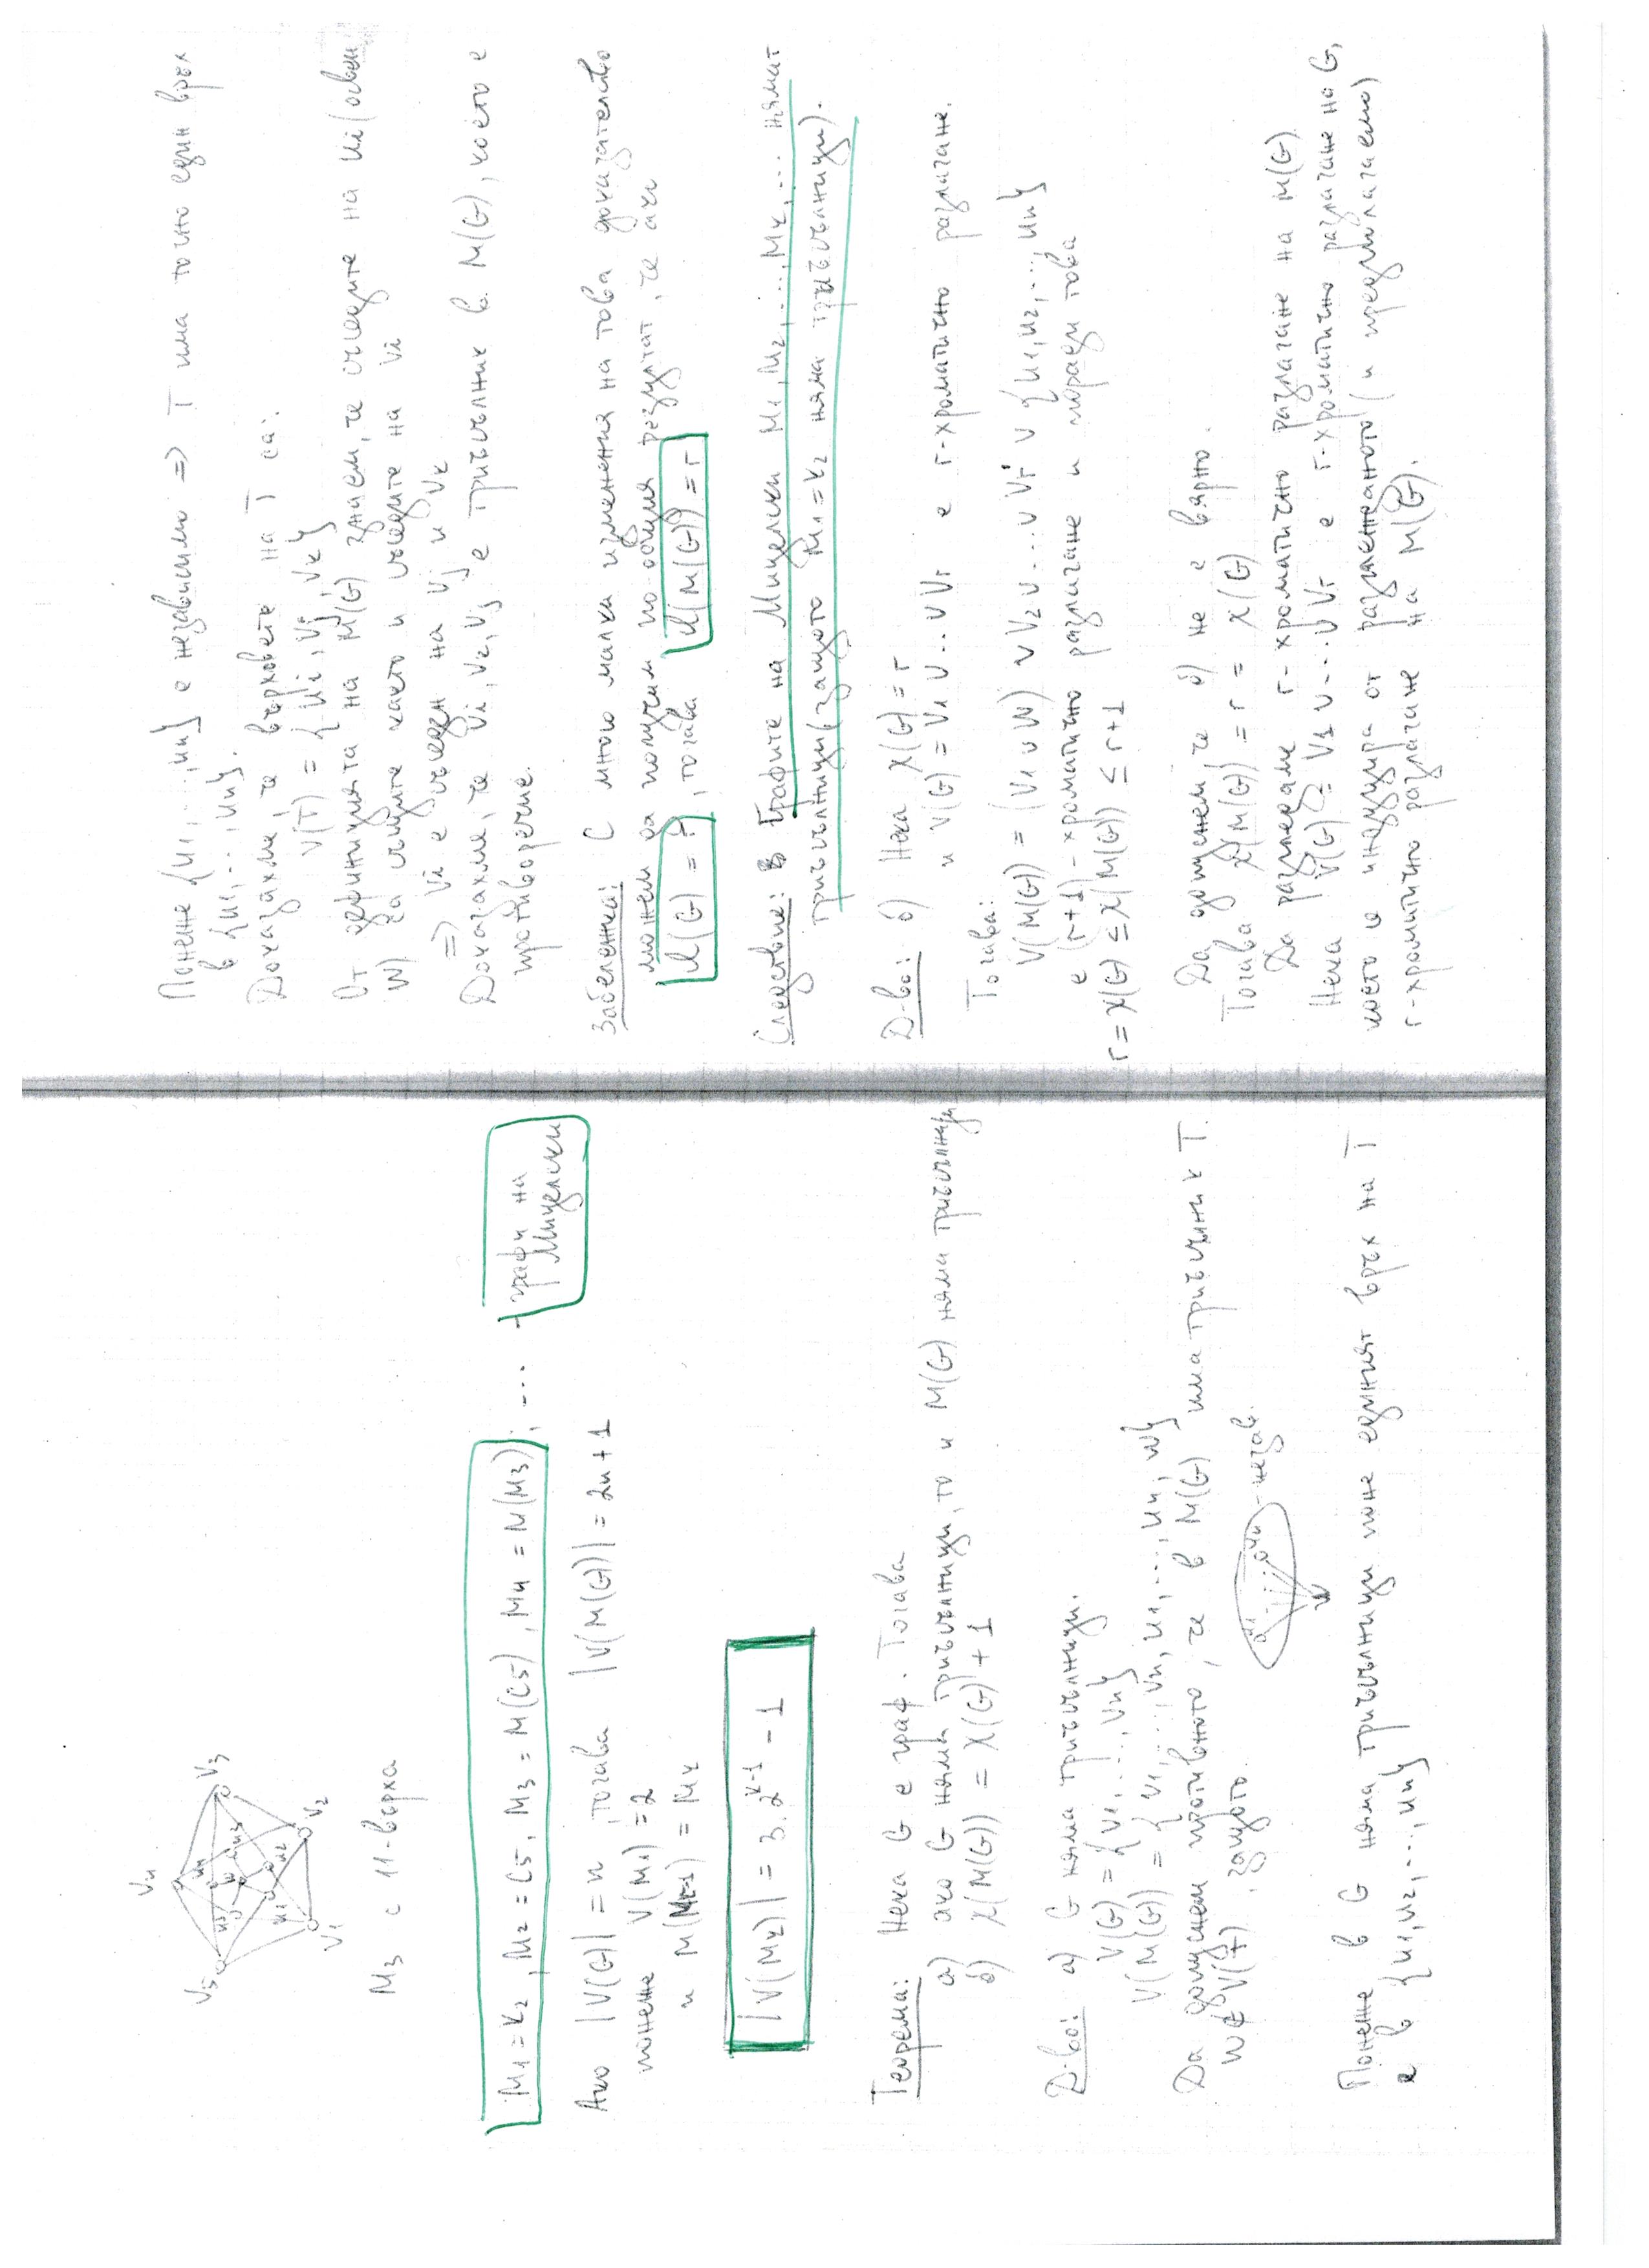 V4
V5
V3
V1
V2
u4
u5
u3
u1
u2
w
M3 с 11-върха
M1 = K2, M2 = C5, M3 = M(C5), M4 = M(M3), ... - графи на
Мицелски
Ако |V(G)| = n, тогава |V(M(G))| = 2n+1
понеже V(M1) = 2
и M(Mk-1) = Mk
|V(Mk)| = 3.2^{k-1} - 1
Теорема: Нека G е граф. Тогава
а) ако G няма триъгълници, то и M(G) няма триъгълници
б) χ(M(G)) = χ(G) + 1
Д-во: а) G няма триъгълници.
V(G) = {V1, ..., Vn}
V(M(G)) = {V1, ..., Vn, u1, ..., un, w}
Да допуснем противното, че в M(G) има триъгълник T.
w ∉ V(T), защото:
u1 un - незав.
w
Понеже в G няма триъгълници поне единият връх на T
е в {u1, u2, ..., un}
Понеже {u1, ..., un} е независимо => T има точно един връх
в {u1, ..., un}.
Доказахме, че върховете на T са:
V(T) = {ui, Vj, Vk}
От дефиницията на M(G) знаем, че съседите на ui (освен
w) са същите както и съседите на Vi
=> Vi е съсед на Vj и Vk
Доказахме, че Vi, Vk, Vj е триъгълник в M(G), което е
противоречие.
Забележка: С много малки изменения на това доказателство
можем да получим по-общия резултат, че ако
cl(G) = r, тогава cl(M(G)) = r
Следствие: в Графите на Мицелски M1, M2, ..., Mk, ... нямат
триъгълници (защото M1 = K2 няма триъгълници).
Д-во: б) Нека χ(G) = r
и V(G) = V1 ∪ ... ∪ Vr е r-хроматично разлагане.
Тогава:
V(M(G)) = (V1 ∪ w) ∪ V2 ∪ ... ∪ Vr ∪ {u1, u2, ..., un}
е (r+1)-хроматично разлагане и поради това
r = χ(G) ≤ χ(M(G)) ≤ r+1
Да допуснем, че б) не е вярно.
Тогава χ(M(G)) = r = χ(G)
Да разгледаме r-хроматично разлагане на M(G)
Нека V(G) = V1 ∪ ... ∪ Vr е r-хроматично разлагане на G,
което се индуцира от разгледаното (и предполагаемо)
r-хроматично разлагане на M(G).